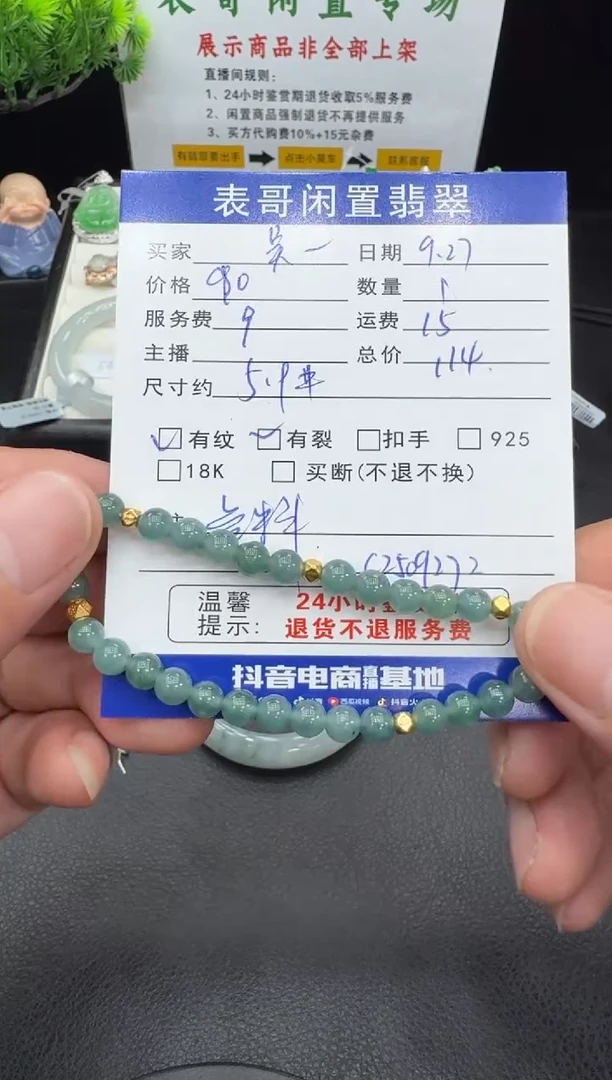 表哥闲置专场
展示商品非全部上架
直播间规则:
1、24小时鉴赏期退货收取5%服务费
2、闲置商品强制退货不再提供服务
3、买方代购费10%+15元杂费
点击小黄车 联系客服
表哥闲置翡翠
买家 吴一 日期 9.27
价格 90 数量 1
服务费 9 运费 15
主播 总价 114.
尺寸约
有纹 有裂 扣手 925
18K 买断(不退不换)
温馨 24小时
提示: 退货不退服务费
抖音电商直播基地
西瓜视频 抖音火